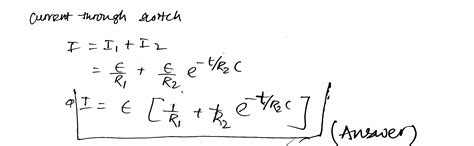 current through switch
I = I₁ + I₂
= ε/R₁ + ε/R₂ e^(-t/R₂C)
I = ε [1/R₁ + 1/R₂ e^(-t/R₂C)]
(Answer)